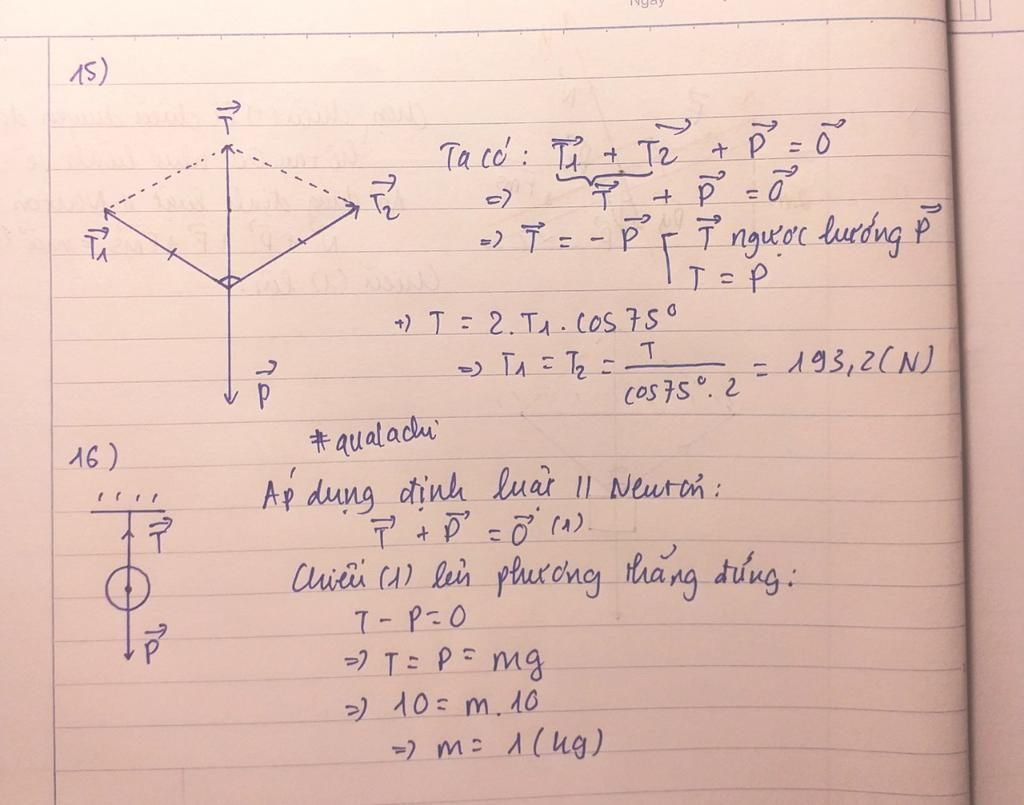 Ngày
15)
T⃗
T⃗1
T⃗2
P⃗
Ta có: T⃗1 + T⃗2 + P⃗ = 0⃗
=> T⃗ + P⃗ = 0⃗
=> T⃗ = - P⃗ [ T⃗ ngược hướng P⃗
T = P
+) T = 2.T1.cos75°
=> T1 = T2 = T / cos75°.2 = 193,2(N)
#qualachi
16)
T⃗
P⃗
Áp dụng định luật II Newton:
T⃗ + P⃗ = 0⃗ (1)
Chiếu (1) lên phương thẳng đứng:
T - P = 0
=> T = P = mg
=> 10 = m.10
=> m = 1(kg)